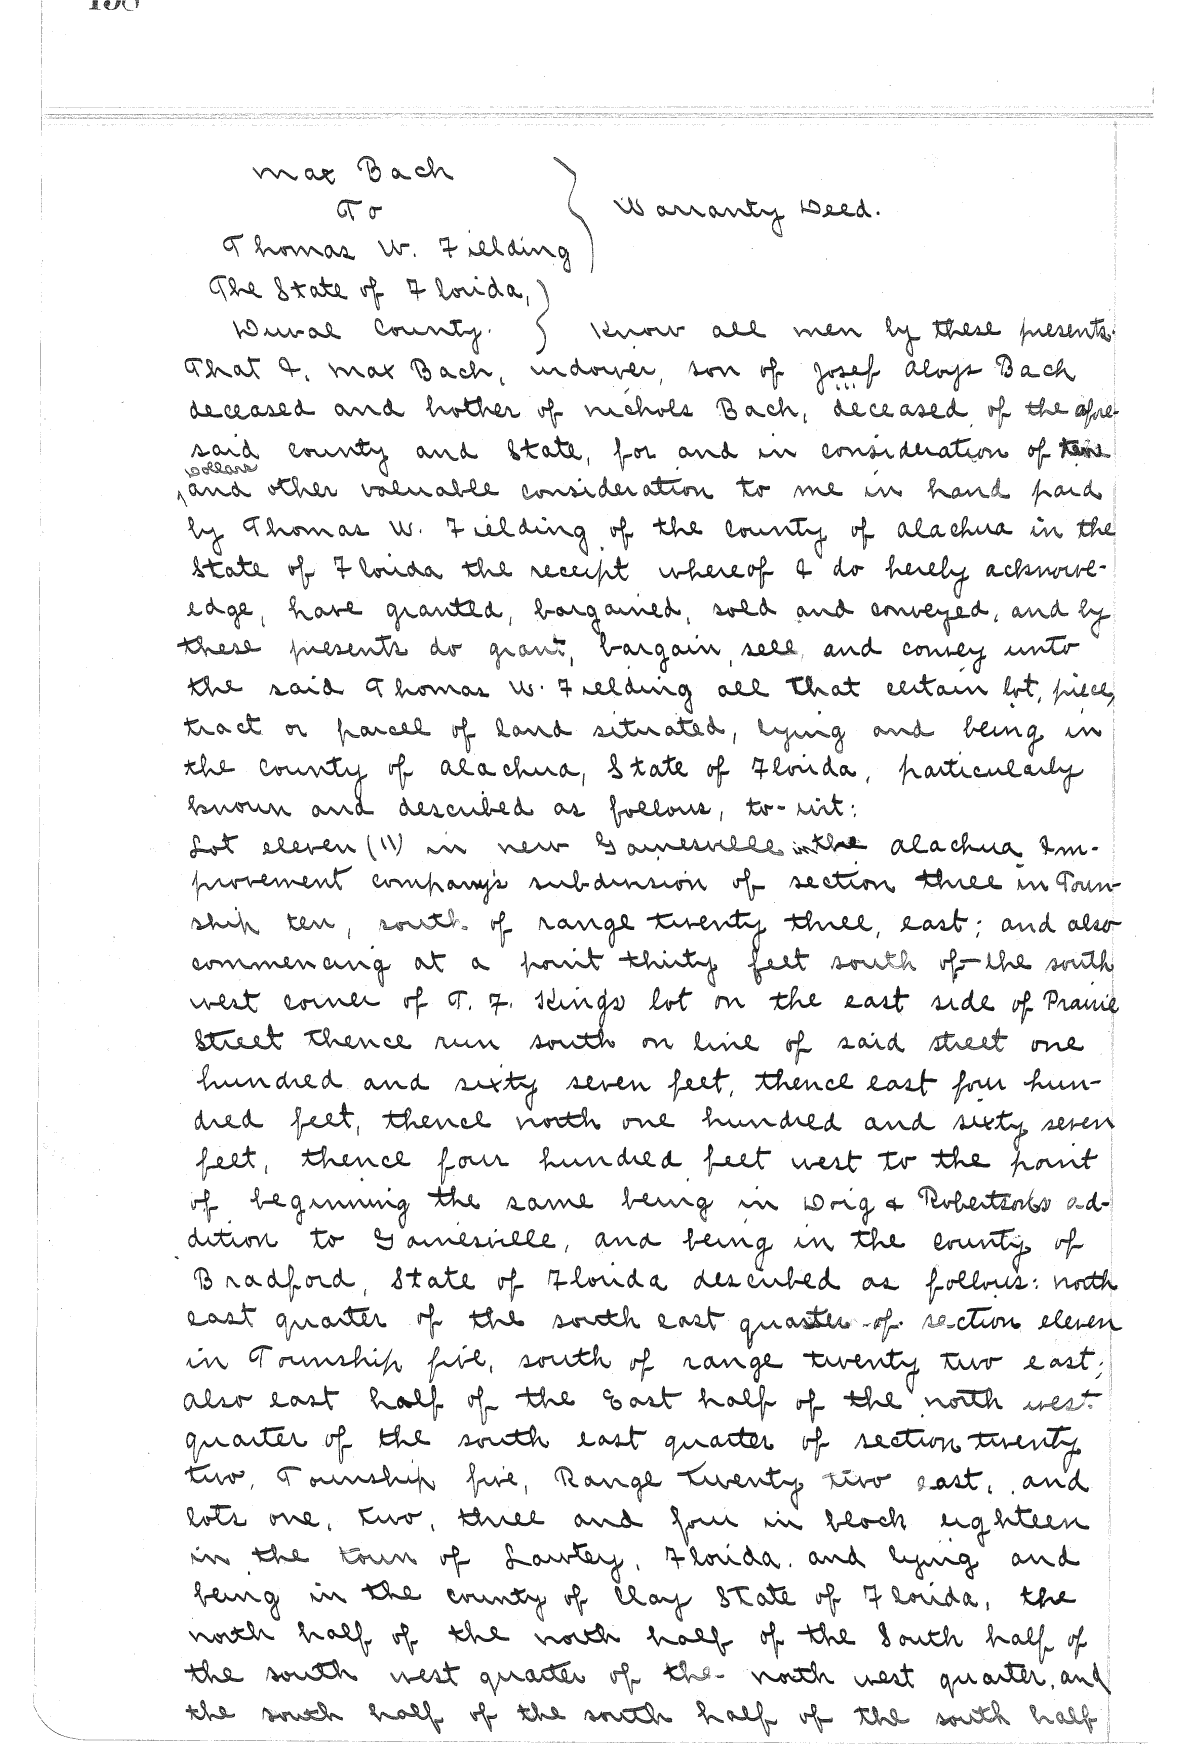 Max Bach
To
Warranty Deed.
Thomas W. Fielding
The State of Florida,
Duval County. Know all men by these presents.
That I, Max Bach, widower, son of Josef Aloys Bach
deceased and brother of Nichols Bach, deceased of the afore-
said county and State, for and in consideration of
dollars
and other valuable consideration to me in hand paid
by Thomas W. Fielding of the County of Alachua in the
State of Florida the receipt whereof I do hereby acknowl-
edge, have granted, bargained, sold and conveyed, and by
these presents do grant, bargain, sell, and convey unto
the said Thomas W. Fielding all that certain lot, piece,
tract or parcel of land situated, lying and being in
the county of Alachua, State of Florida, particularly
known and described as follows, to-wit:
Lot eleven (11) in new Gainesville in the Alachua Im-
provement company's subdivision of section three in Town-
ship ten, south of range twenty three, east; and also
commencing at a point thirty feet south of the south
west corner of T. F. Kings lot on the east side of Prairie
Street thence run south on line of said street one
hundred and sixty seven feet, thence east four hun-
dred feet, thence north one hundred and sixty seven
feet, thence four hundred feet west to the point
of beginning the same being in Doig & Robertsons ad-
dition to Gainesville, and being in the county of
Bradford, State of Florida described as follows: north
east quarter of the south east quarter of section eleven
in Township five, south of range twenty two east;
also east half of the East half of the north west
quarter of the south east quarter of section twenty
two, Township five, Range twenty two east, and
lots one, two, three and four in block eighteen
in the town of Lawtey, Florida. and lying and
being in the county of Clay State of Florida, the
north half of the north half of the South half of
the south west quarter of the north west quarter, and
the south half of the south half of the south half